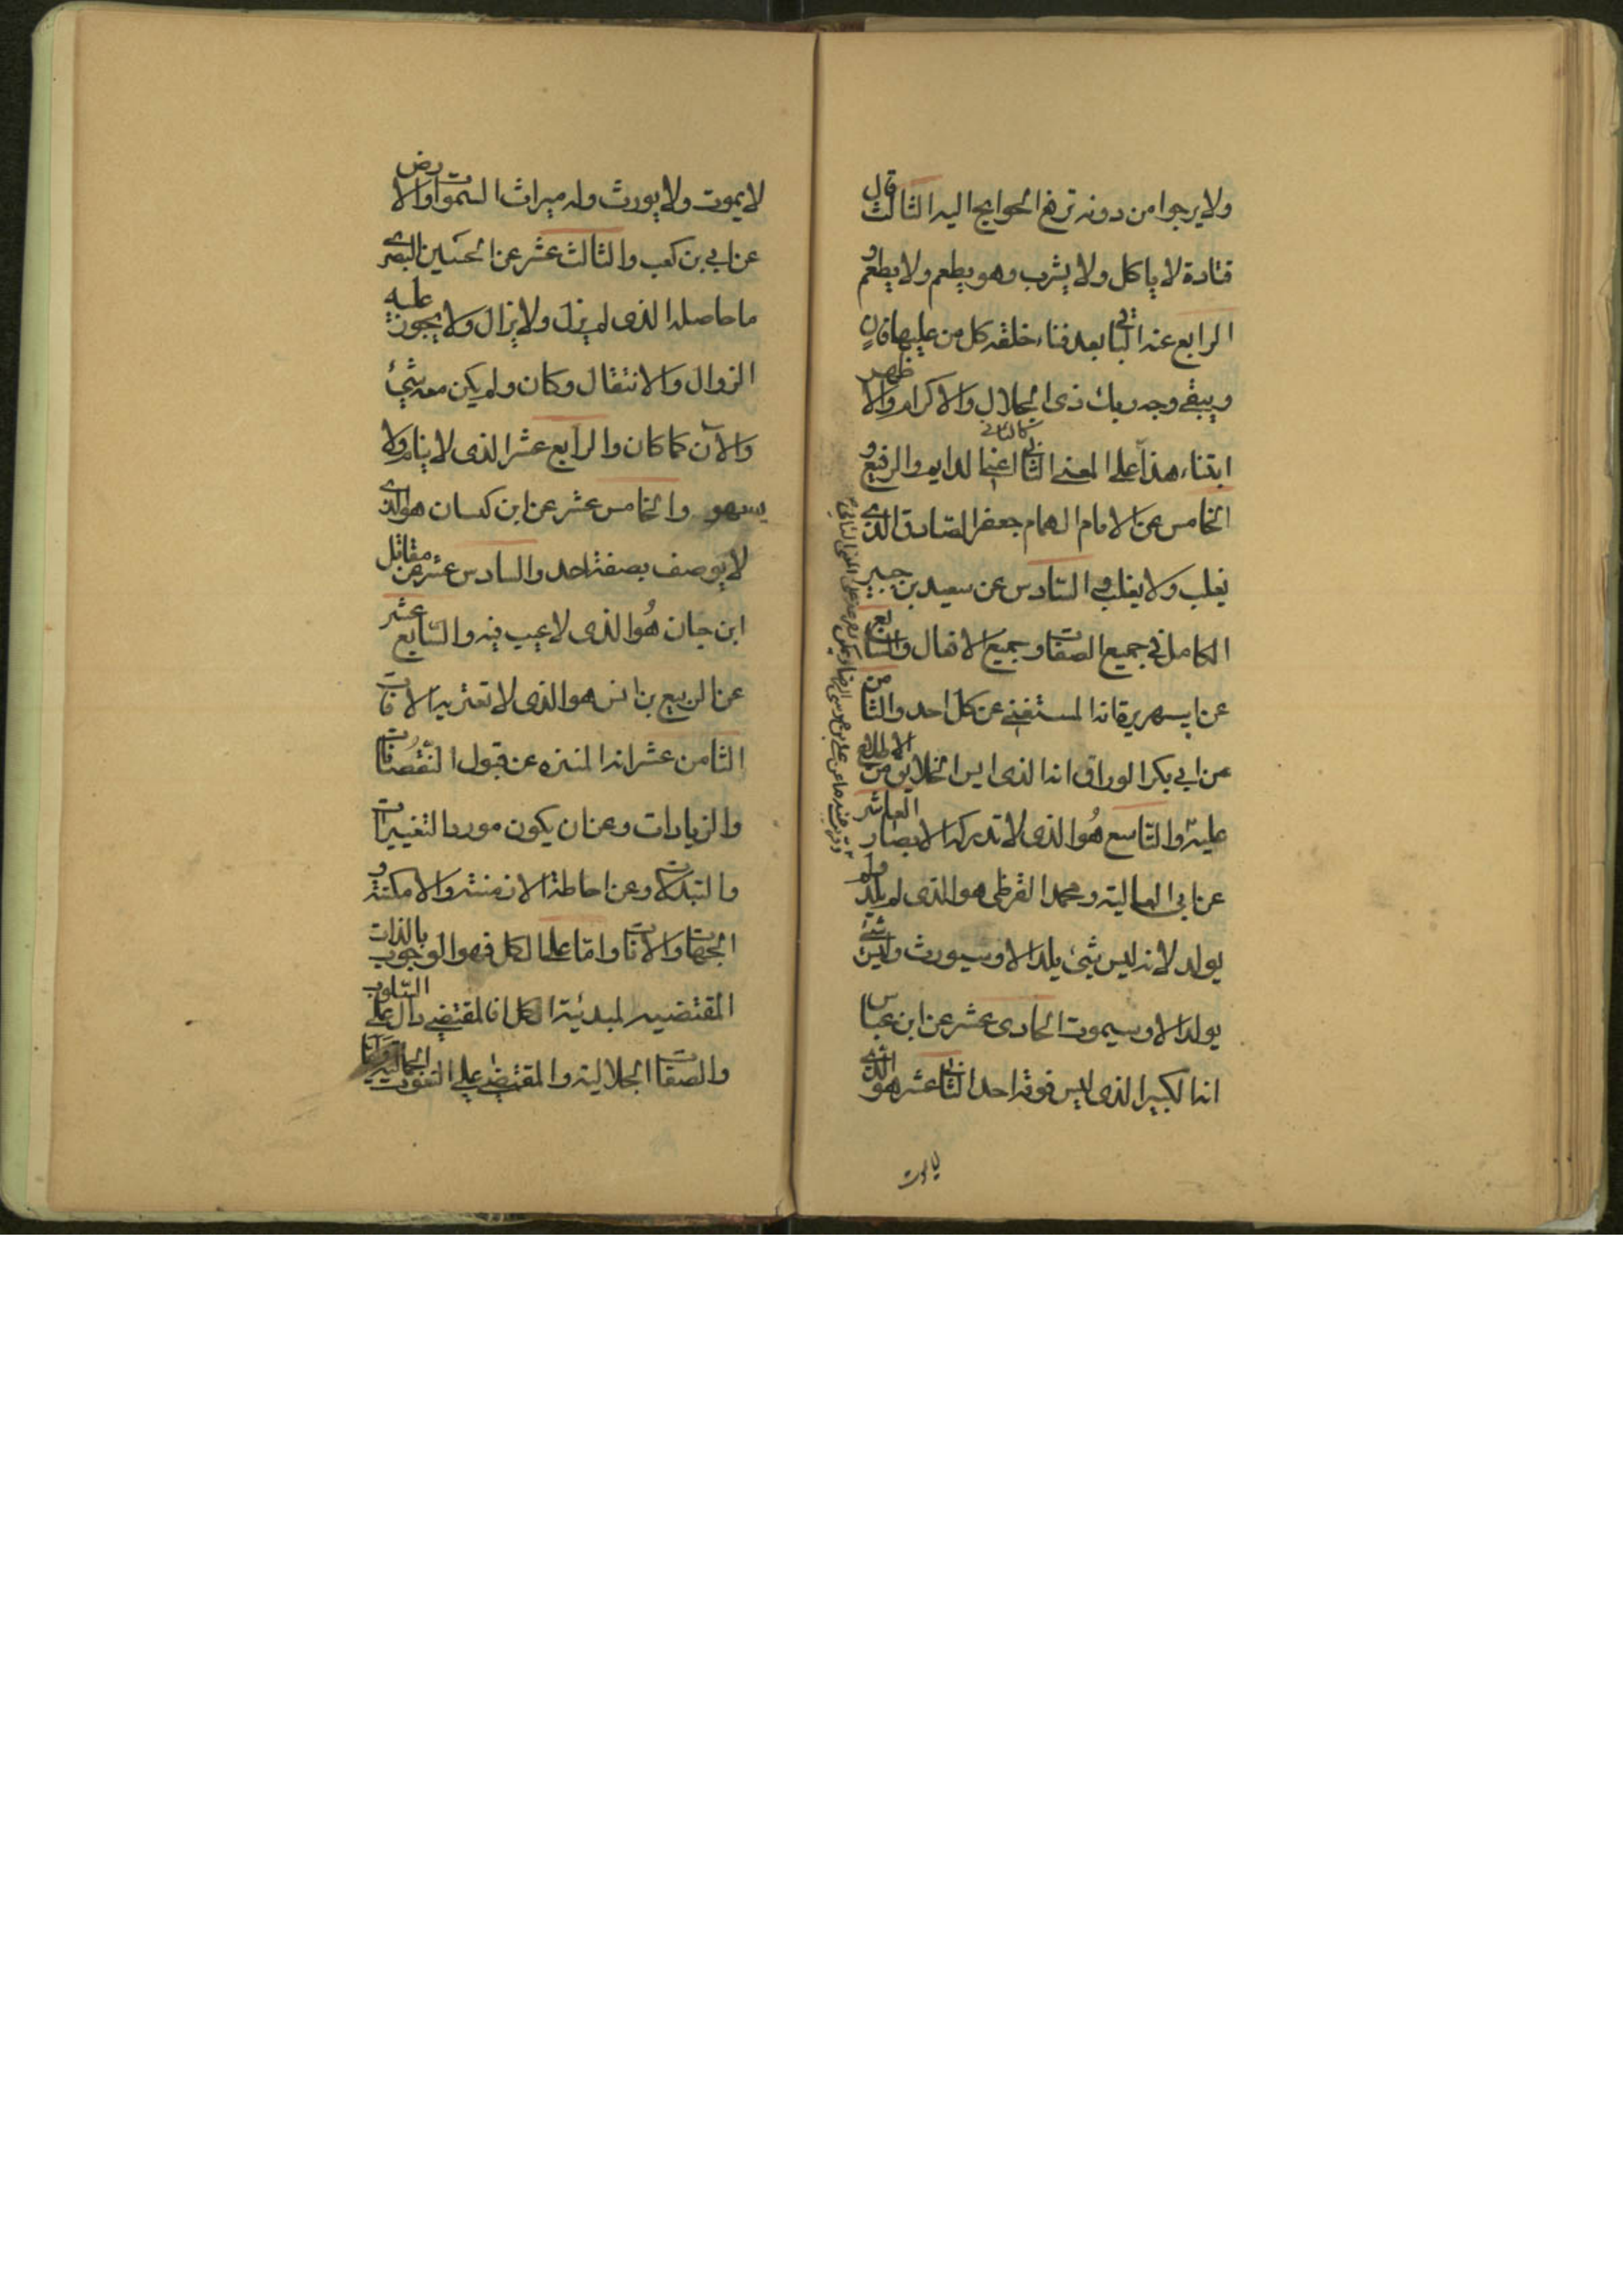 ولا يرجوا من دونه ترفع الحوايج اليه الثالث قال
قتادة لا ياكل ولا يشرب وهو يطعم ولا يطعم و
الرابع عنه الباقى بعد فناء خلقه كل من عليها فان
ويبقى وجه ربك ذى الجلال والاكرام والاظهر
ابتناء هذا على المعنى الثانى اعنى الدايم والرفيع و
الخامس عن الامام الهمام جعفر الصادق الذى
يغلب ولا يغلب و السادس عن سعيد بن جبير
الكامل فى جميع الصفات و جميع الافعال والسابع
عن ابى هريرة انه المستغنى عن كل احد والثامن
عن ابى بكر الوراق انه الذى ايس الخلايق من الاطلاع
عليه والتاسع هُوَ الذى لا تدركه الابصار العاشر
عن ابى العالية و محمد القرظى هو الذى لم يلد ولم
يولد لانه ليس شىء يلد الا و سيورث وليس شىء
يولد الا و سيموت الحادى عشر عن ابن عباس
انه الكبير الذى ليس فوقه احد الثانى عشر هو الذى
لا يموت
لا يموت ولا يورث وله ميراث السموات والارض
عن ابى بن كعب والثالث عشر عن الحسين البصرى
ما حاصله الذى لم يزل ولا يزال ولا يجوز عليه
الزوال والانتقال وكان ولم يكن معه شىء
والآن كما كان والرابع عشر الذى لا ينام ولا
يسهو والخامس عشر عن ابن كسان هو الذى
لا يوصف بصفته احد والسادس عشر عن مقاتل
ابن حيان هُوَ الذى لا عيب فيه والسابع عشر
عن الربيع بن انس هو الذى لا تعتريه الافات
الثامن عشر انه المنزه عن قبول النقصانات
والزيادات وعن ان يكون موردا لتغييرات
والتبدلات وعن احاطة الازمنة والامكنة و
الجهات والآنات واما علما لكل فهو الوجوب بالذات
المقتضيه لمبدئية الكل فالمقتضى دال على السلوب
والصفات الجلالية والمقتضى على النعوت الجمالية